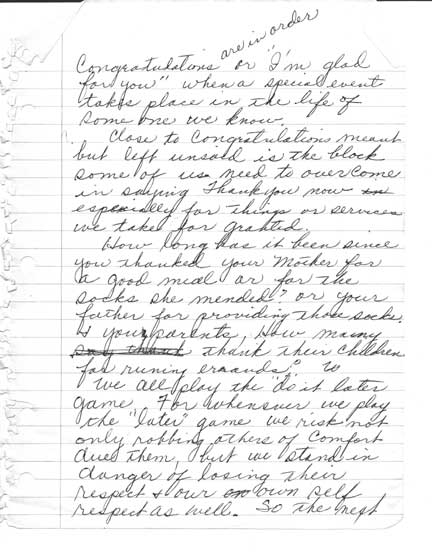 are in order
Congratulations or "I'm glad
for you" when a special event
takes place in the life of
some one we know.
Close to Congratulations meant
but left unsaid is the block
some of us need to overcome
in saying Thank you now in
especially for things or services
we take for granted.
How long has it been since
you thanked your Mother for
a good meal or for the
socks she mended? or your
father for providing those socks.
& your parents, How many
say thank thank their children
for runing eraands? W
We all play the "do it later
game. For whenever we play
the "later" game we risk not
only robbing others of comfort
due them, but we stand in
danger of losing their
respect & our own own self
respect as well. So the next